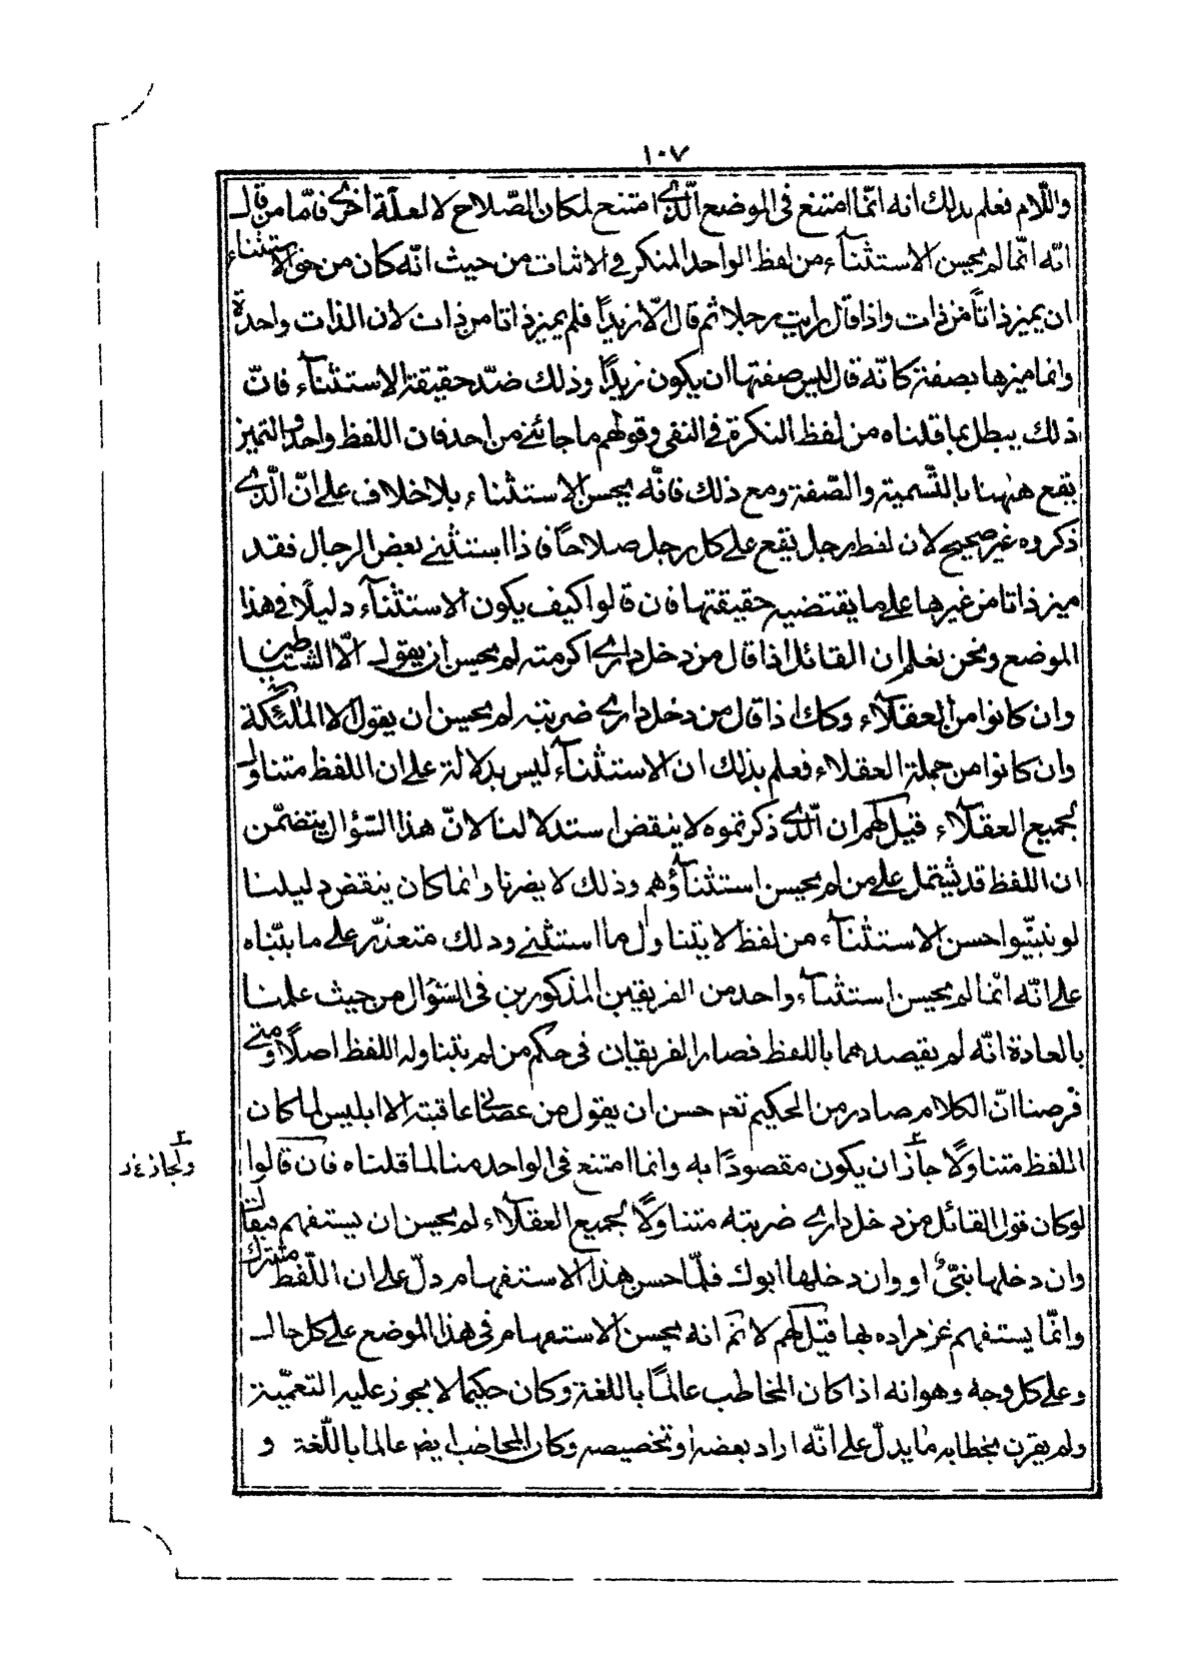 ١٠٧
واللّام فعلم بذلك انه انّما امتنع فى الموضع الّذى امتنع لمكان الصّلاح لا لعلّة اخرى فامّا من قال
انّه انّما لم يحسن الاستثنآء من لفظ الواحد المنكر فى الاثبات من حيث انّه كان من حق الاستثناء
ان يميز ذاتاً من ذات واذا قال رايت رجلا ثم قال الّا زيداً فلم يميز ذاتا من ذات لان الذات واحدة
وانما ميزها بصفة كانّه قال ليس صفتها ان يكون زيداً وذلك ضدّ حقيقة الاستثنآء فانّ
ذلك يبطل بما قلناه من لفظ النكرة فى النفى وقولهم ما جائنى من احد فان اللفظ واحد والتميز
يقع ههنا بالتّسمية والصّفة ومع ذلك فانّه يحسن الاستثناء بلا خلاف على انّ الّذى
ذكروه غير صحيح لان لفظ رجل يقع على كل رجل صلاحاً فاذا استثنى بعض الرجال فقد
ميز ذاتا من غيرها على ما يقتضيه حقيقتها فان قالوا كيف يكون الاستثنآء دليلًا فى هذا
الموضع ونحن نعلم ان القائل اذا قال من دخل دارى اكرمته لم يحسن ان يقول الّا الشياطين
وان كانوا من العقلآء وكك اذا قال من دخل دارى ضربته لم يحسن ان يقول الا الملئكة
وان كانوا من جملة العقلاء فعلم بذلك ان الاستثنآء ليس بدلالة على ان اللفظ متناول
لجميع العقلآء قيل لهم ان الّذى ذكرتموه لا ينقض استدلالنا لانّ هذا السّؤال يتضمّن
ان اللفظ قد يشتمل على من لم يحسن استثنآؤهم وذلك لا يضرنا وانما كان ينقض دليلنا
لو تبيّنوا حسن الاستثنآء من لفظ لا يتناول ما استثنى وذلك متعذّر على ما بيّناه
على انّه انّما لم يحسن استثنآء واحد من الفريقين المذكورين فى السّؤال من حيث علمنا
بالعادة انّه لم يقصدهما باللفظ فصار الفريقان فى حكم من لم يتناوله اللفظ اصلًا ومتى
فرضنا انّ الكلام صادر من الحكيم تعم حسن ان يقول من عصانى عاقبته الا ابليس لما كان
اللفظ متناولًا جآز ان يكون مقصودًا به وانما امتنع فى الواحد منا لما قلناه فان قالوا
ولجاز
لو كان قول القائل من دخل دارى ضربته متناولًا لجميع العقلآء لم يحسن ان يستفهم فيقال
وان دخلها نبىّ او وان دخلها ابوك فلمّا حسن هذا الاستفهام دلّ على ان اللّفظ مشترك
وانّما يستفهم عن مراده بها قيل لهم لا نم انه يحسن الاستفهام فى هذا الموضع على كل حال
وعلى كل وجه وهو انه اذا كان المخاطب عالمًا باللغة وكان حكيما لا يجوز عليه التعميّة
ولم يقرن بخطابه ما يدلّ على انّه اراد بعضه او تخصيصه وكان المخاطب ايضم عالما باللّغة و